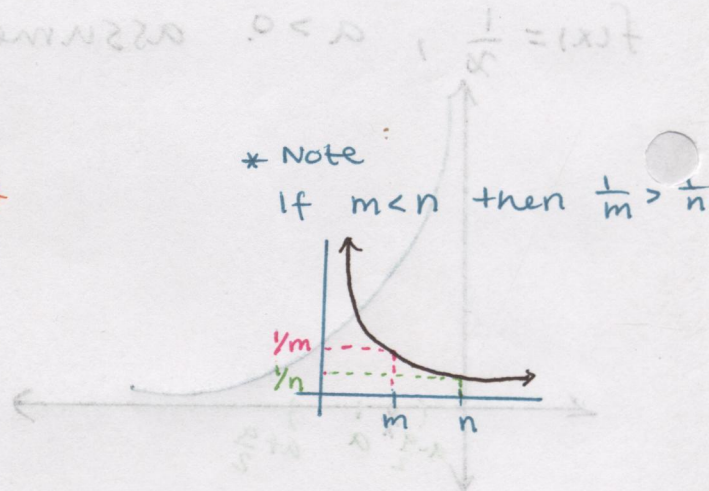 * Note
If m<n then 1/m > 1/n
1/m
1/n
m n